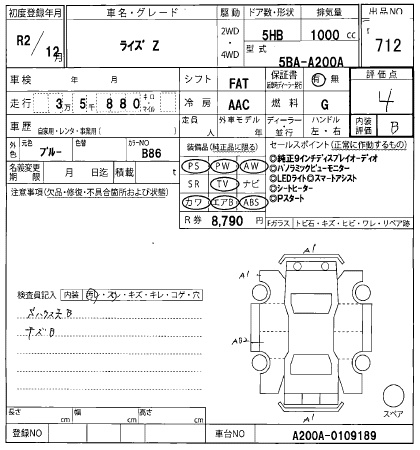 初度登録年月 車名・グレード 駆動 ドア数・形状 排気量 出品NO
R2/12月 ライズ Z 2WD・4WD 5HB 1000 cc 712
型式 5BA-A200A
車検 年 月 シフト FAT 保証書 有 無 評価点
走行 3万5千880 キロ・マイル 冷房 AAC 燃料 G 4
車歴 自家用・レンタ・事業用( ) 定員 人 外車モデル 年 ディーラー 並行 ハンドル 左・右 内装評価 B
外色 元色 ブルー 色替 カラーNO B86
装備品(純正品に限る) セールスポイント(正常に作動するもの)
名義変更期限 月 日迄 積載 t
PS PW AW
SR TV ナビ
カワ エアB ABS
R券 8,790 円
◎純正9インチディスプレイオーディオ
◎パノラミックビューモニター
◎LEDライト◎スマートアシスト
◎シートヒーター
◎Pスタート
注意事項(欠品・修復・不具合箇所および状態)
Fガラス トビ石・キズ・ヒビ・ワレ・リペア跡
検査員記入 内装 ・スレ・キズ・キレ・コゲ・穴
キズB
A1
A1
A1
スペア
長さ cm 幅 cm 高さ cm
登録NO 車台NO A200A-0109189